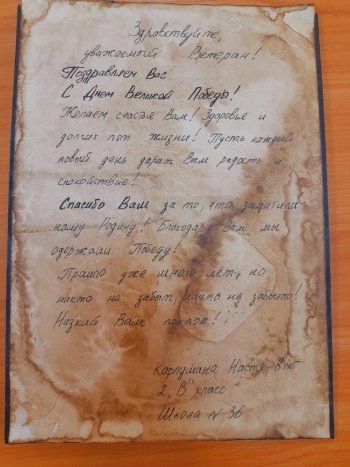 Здравствуйте,
уважаемый Ветеран!
Поздравляем Вас
С Днем Великой Победы!
Желаем счастья Вам! Здоровья и
долгих лет жизни! Пусть каждый
новый день дарит Вам радость и
спокойствие!
Спасибо Вам за то, что защитили
нашу Родину! Благодаря Вам мы
одержали Победу!
Прошло уже много лет, но
никто не забыт, ничто не забыто!
Низкий Вам поклон!
Карпушина Настя, 8 лет
2 „В" класс
Школа N 36